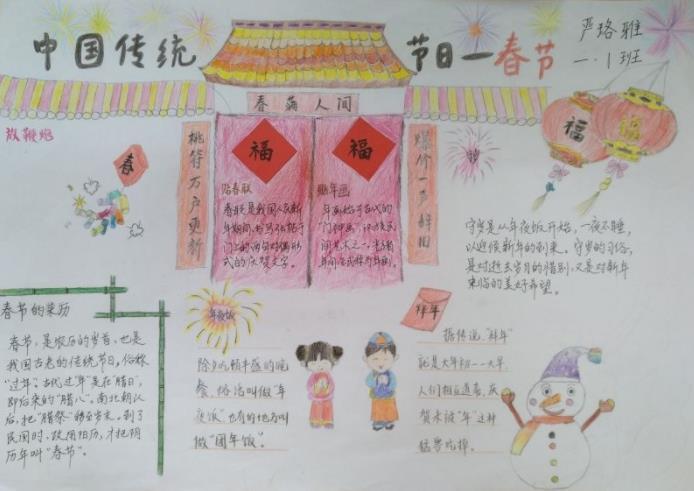 中国传统
节日一春节
严珞雅
一.1班
春满人间
放鞭炮
春
桃符万户更新
爆竹一声辞旧
福
福
福
贴春联
春联是我国人民新
年期间,书写张贴于
门上的两句对偶形
式的庆贺文字。
贴年画
年画始于古代的
"门神画",
守岁是从年夜饭开始,一夜不睡,
以迎候新年的到来。守岁的习俗,
是对逝去岁月的惜别,又是对新年
来临的美好希望。
春节的来历
春节,是农历的岁首,也是
我国古老的传统节日,俗称
"过年"。古代过"年"是在"腊日",
即后来的"腊八"。南北朝以
后,把"腊祭"移至岁末。到了
民国时,改用阳历,才把阴
历年叫"春节"。
年夜饭
除夕吃顿丰盛的晚
餐,俗话叫做"年
夜饭"也有的地方叫
做"团年饭"。
拜年
据传说,"拜年"
就是大年初一一大早,
人们相互道喜,庆
贺未被"年"这种
猛兽吃掉。